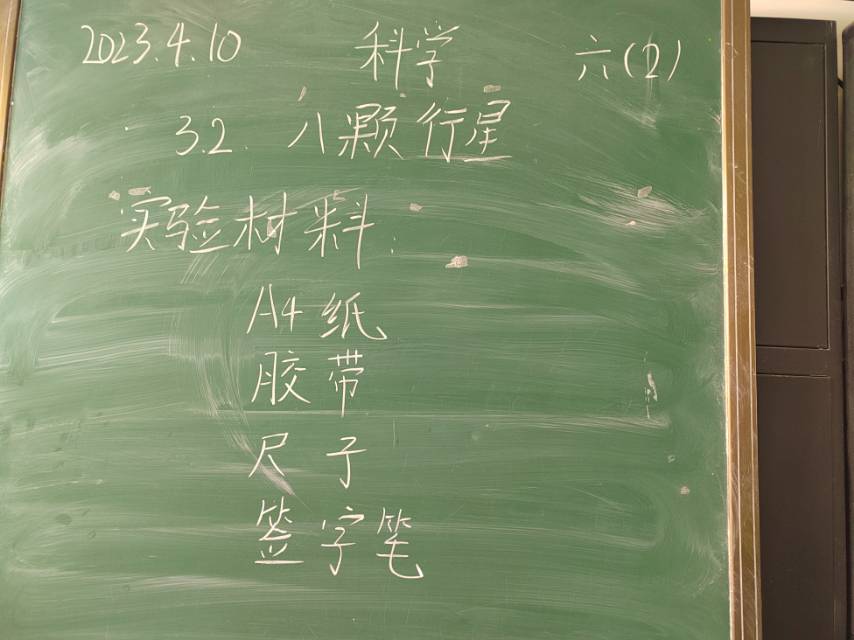 2023.4.10 科学 六(2)
3.2. 八颗行星
实验材料:
A4纸
胶带
尺子
签字笔